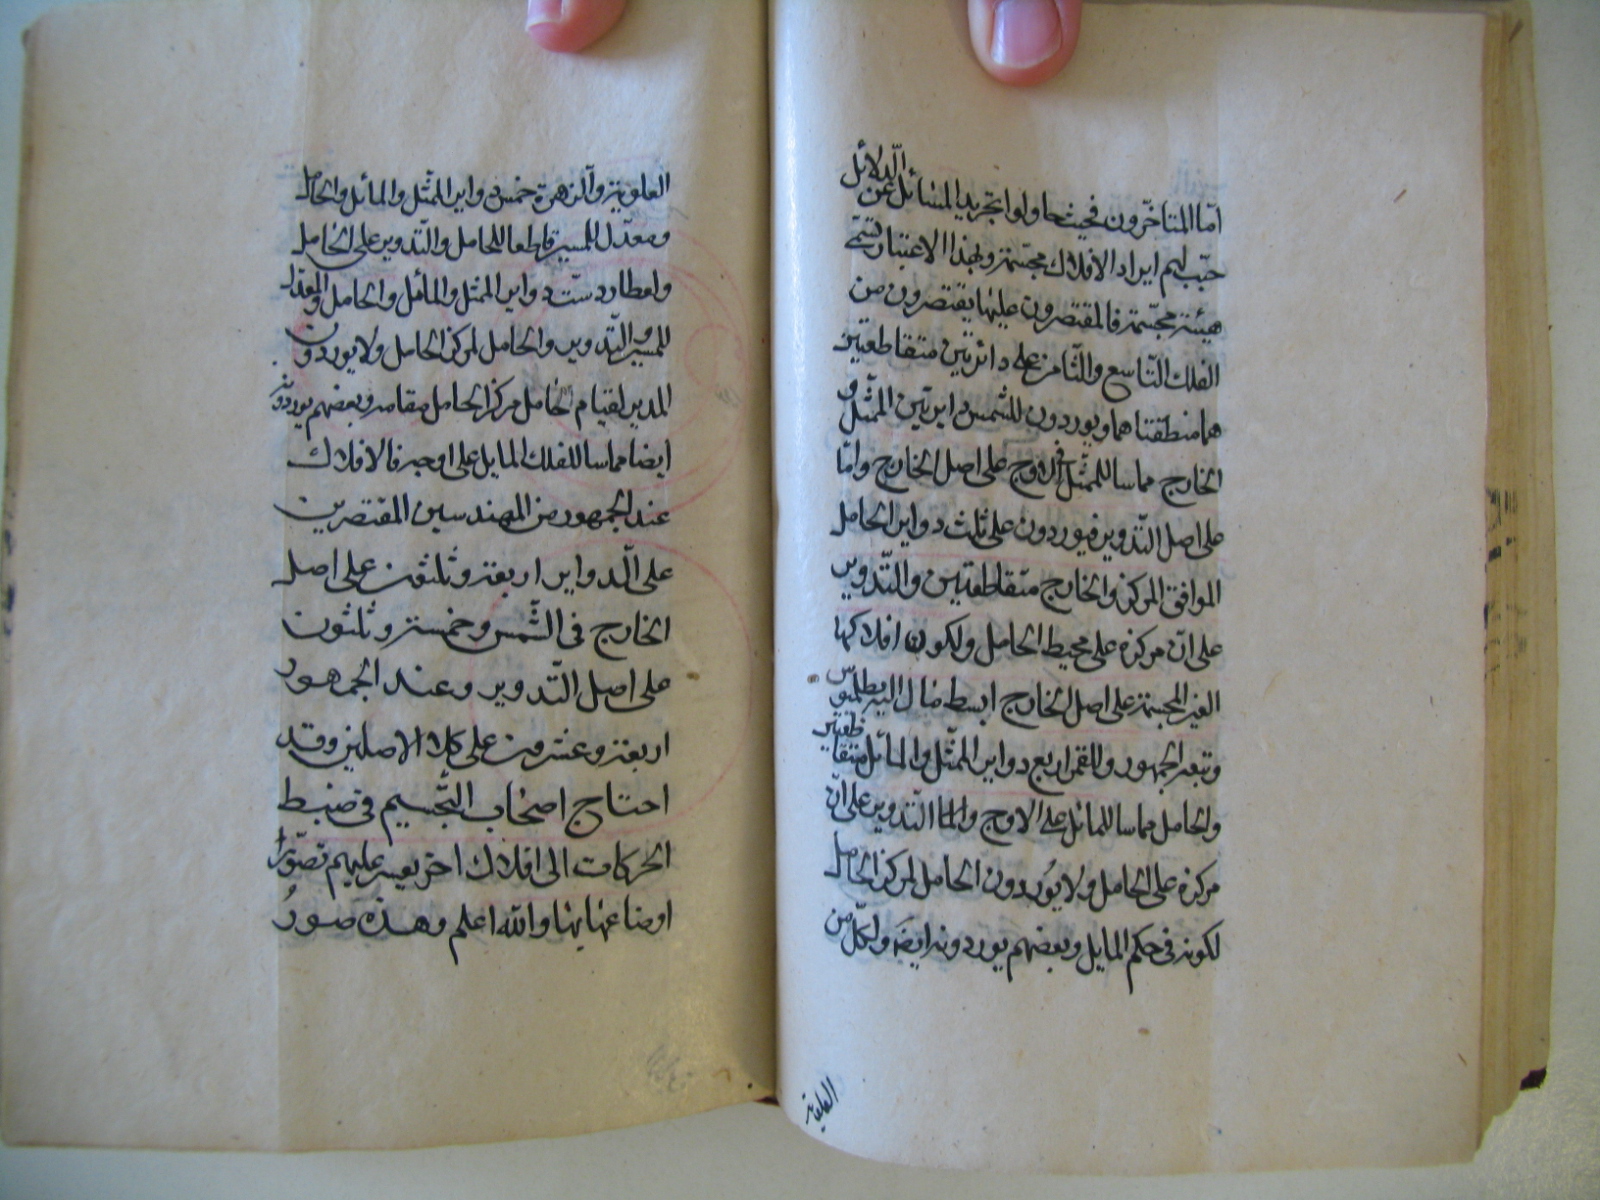 امّا المتاخّرون فحيث حاولوا تجريد المسائل عن الدّلائل
حبّب لهم ايراد الافلاك مجسّمة وبهذا الاعتبار تسمّى
هيئة مجسّمة فالمقتصرون عليها يقتصرون من
الفلك التّاسع والثّامن على دائرتين متقاطعتين
هما منطقتاهما ويوردون للشمس دايرتين الممثّل و
الخارج مماسا للممثّل فى الاوج على اصل الخارج وامّا
على اصل التّدوير فيوردون على ثلث دواير الحامل
الموافق المركز والخارج متقاطعتين والتّدوير
على انّ مركزه على محيط الحامل ولكون افلاكها
الغير المجسّمة على اصل الخارج ابسط مال اليه بطلميوس
وتبعه الجمهور وللقمر اربع دواير الممثّل والمائل متقاطعتين
والحامل مماسا للمائل على الاوج والتدوير على انّ
مركزه على الحامل ولا يوردون الحامل لمركز الحامل
لكونه فى حكم المايل وبعضهم يوردونه ايضا ولكلّ من
العلوية
العلوية والزهرة خمس دواير الممثّل والمائل والحامل
ومعدّل للمسير قاطعا للحامل والتّدوير على الحامل
ولعطارد ستّ دواير الممثل والمائل والحامل والمعدّل
للمسير والتّدوير والحامل لمركز الحامل ولا يوردون
المدير لقيام الحامل مركز الحامل مقامه وبعضهم يوردونه
ايضا مماسا للفلك المايل على اوجه فالافلاك
عند الجمهور من المهندسين المقتصرين
على الدواير اربعة وثلثون على اصل
الخارج فى الشّمس وخمسة وثلثون
على اصل التّدوير وعند الجمهور
اربعة وعشرون على كلا الاصلين وقد
احتاج اصحاب التّجسيم فى ضبط
الحركات الى افلاك اخر يعسر عليهم تصوّر
اوضاعها والله اعلم وهذه صورُ